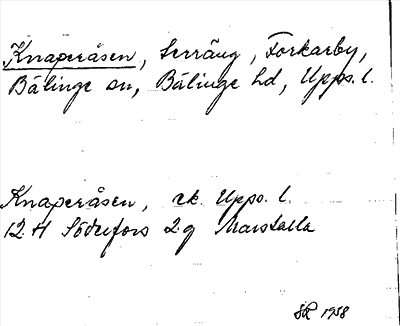 Knaperåsen, terräng, Forkarby,
Bälinge sn, Bälinge hd, Upps. l.
Knaperåsen, rk. Upps. l.
12 H Söderfors 2 g Marstalla
SR 1958